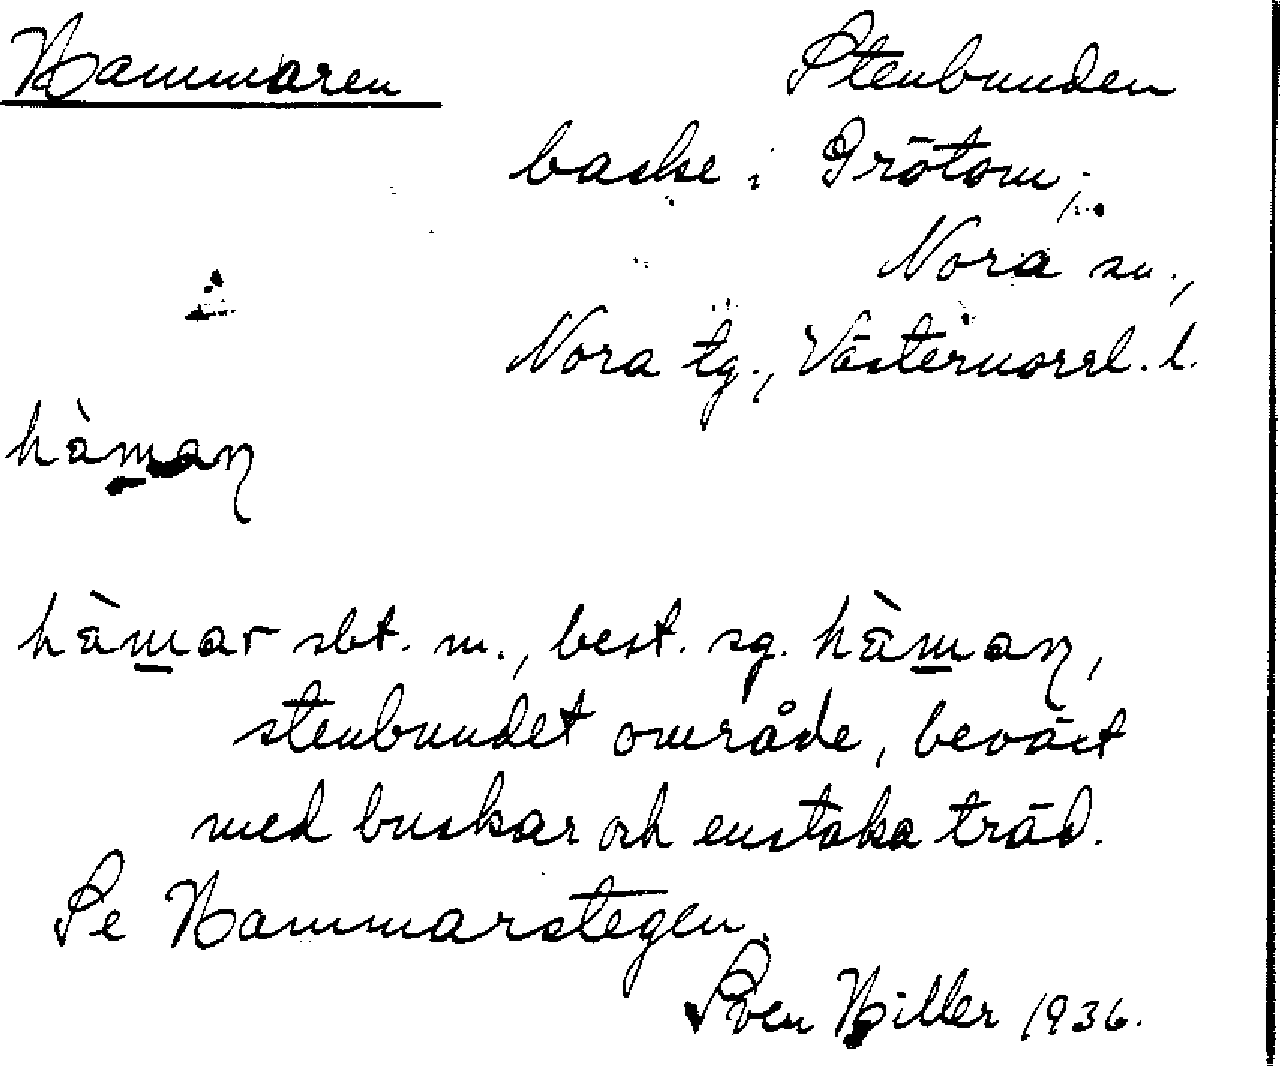 Hammaren Stenbunden
backe i Grötom,
Nora sn.,
Nora tg., Västernorrl. l.
hàman
hàmar sbt. m., best. sg. hàman,
stenbundet område, beväxt
med buskar och enstaka träd.
Se Hammarstegen.
Sven Hiller 1936.